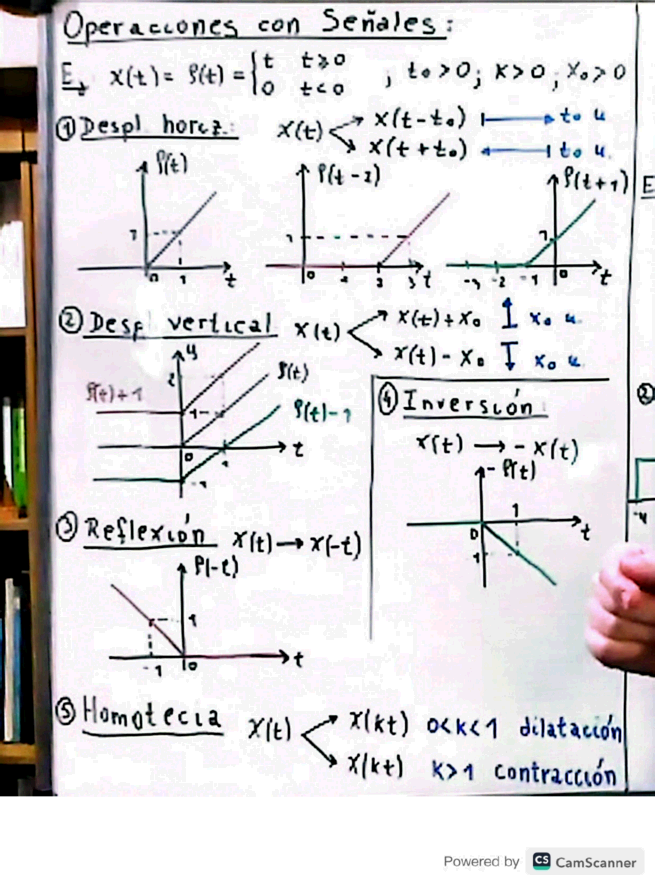 Operaciones con Señales:
E, x(t) = ρ(t) = { t t ≥ 0 ; t₀ > 0 ; K > 0 ; x₀ > 0
0 t < 0
① Despl horiz: x(t) x(t - t₀) t₀ u
x(t + t₀) t₀ u.
ρ(t) ρ(t - 2) ρ(t + 1)
1 1 1
0 1 t 0 1 2 3 t -3 -2 -1 0 t
② Desp vertical x(t) x(t) + x₀ x₀ u
x(t) - x₀ x₀ u
y
2
ρ(t) + 1 ρ(t)
1 ρ(t) - 1
0 1 t
-1
④ Inversión
x(t) → - x(t)
- ρ(t)
1
0 t
1
③ Reflexión x(t) → x(-t)
ρ(-t)
1
-1 0 t
⑤ Homotecia x(t) x(kt) 0<k<1 dilatación
x(kt) k>1 contracción
E
②
-4
Powered by CS CamScanner